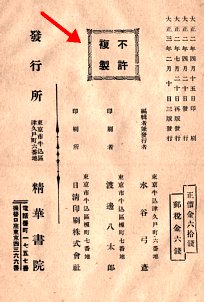 大正二年四月十五日印刷
大正二年四月二十日發行
大正二年七月二十日再版發行
大正三年二月十日三版發行
正價金六拾錢
郵税金六錢
不許複製
編輯者兼發行者
東京市牛込區津久戸町六番地
水谷弓
印刷者
東京市牛込區榎町七番地
渡邊八太郎
印刷所
東京市牛込區榎町七番地
日清印刷株式會社
發行所
東京市牛込區津久戸町六番地
精華書院